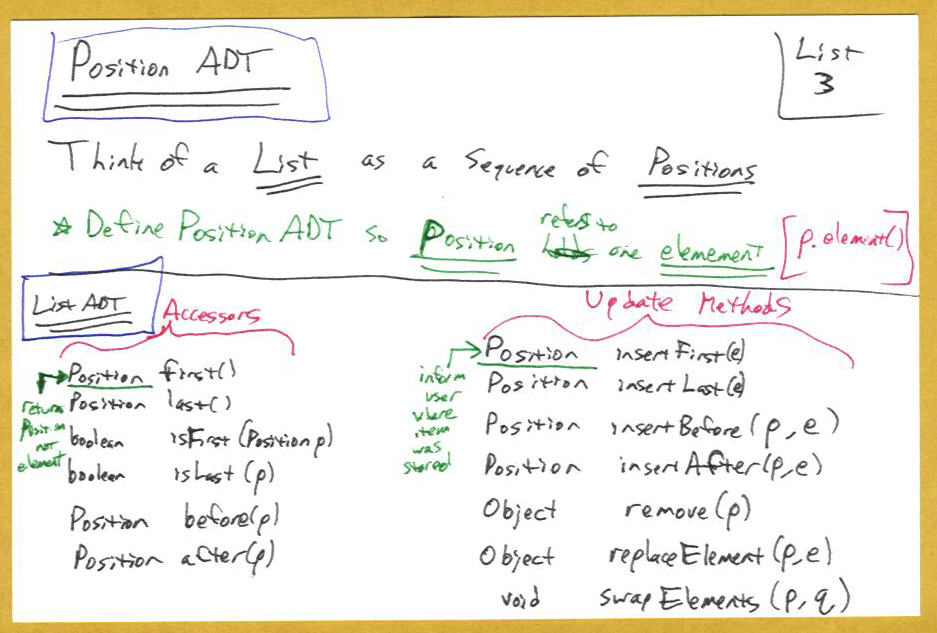 Position ADT
List
3
Think of a List as a Sequence of Positions
* Define Position ADT so Position refers to one elemement [p.element()]
List ADT
Accessors
Position first()
Position last()
boolean isFirst(Position p)
boolean isLast(p)
Position before(p)
Position after(p)
return
Position
not
element
Update Methods
Position insertFirst(e)
Position insertLast(e)
Position insertBefore(p,e)
Position insertAfter(p,e)
Object remove(p)
Object replaceElement(p,e)
void swapElements(p,q)
inform
user
where
item
was
stored